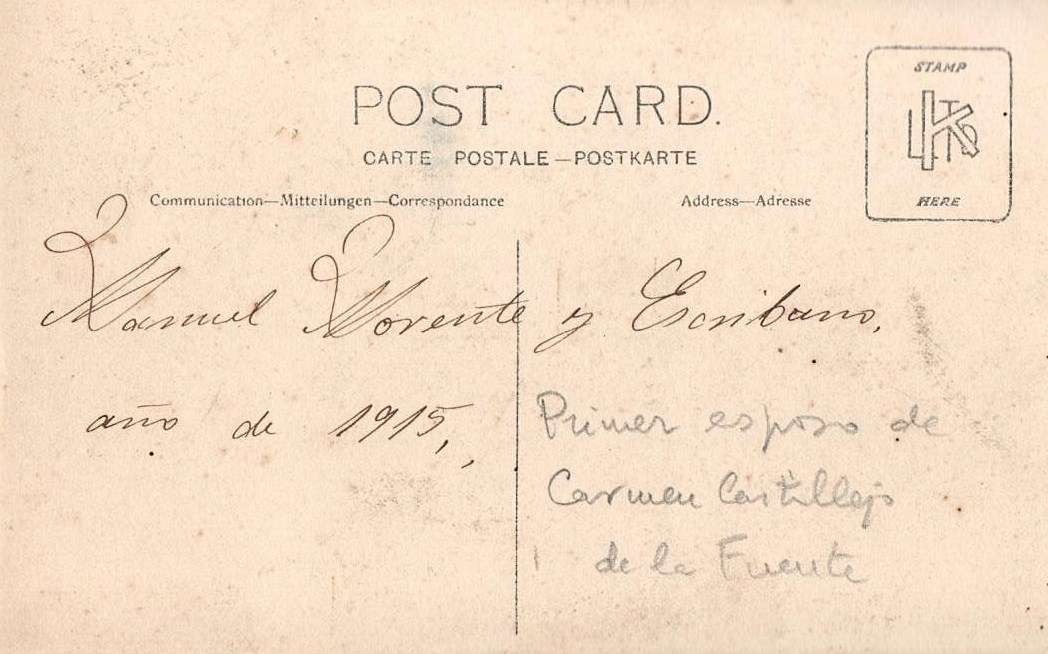 POST CARD.
CARTE POSTALE—POSTKARTE
Communication—Mitteilungen—Correspondance
Address—Adresse
STAMP
HERE
Manuel Morente y Escribano,
año de 1915,,
Primer esposo de
Carmen Castillejo
de la Fuente